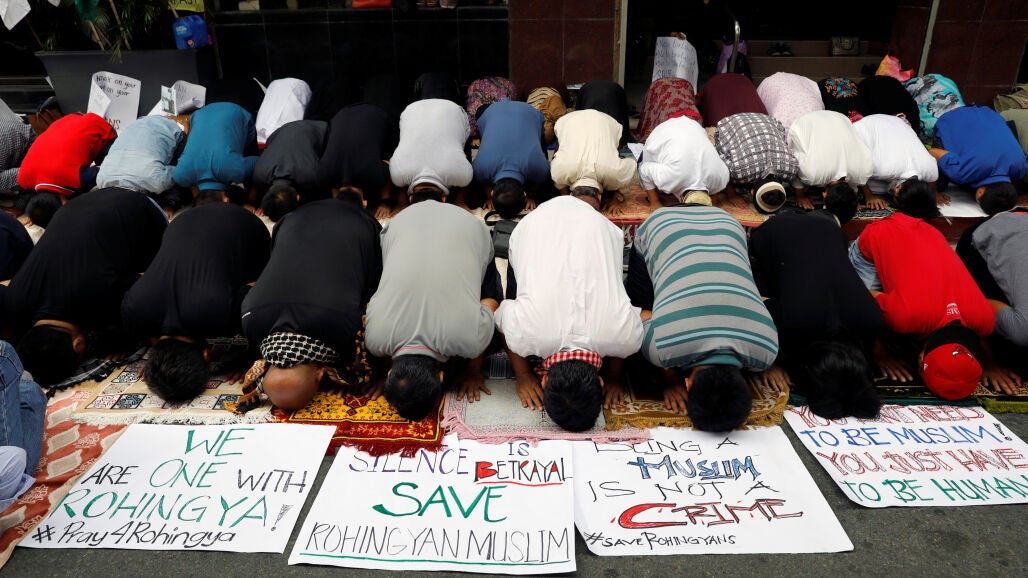 WE
ARE ONE WITH
ROHINGYA!
#Pray4Rohingya
SILENCE IS
BETRAYAL
SAVE
ROHINGYAN MUSLIM
BEING A
MUSLIM
IS NOT A
CRIME
#SAVE ROHINGYANS
NEED
TO BE MUSLIM!
YOU JUST HAVE
TO BE HUMAN